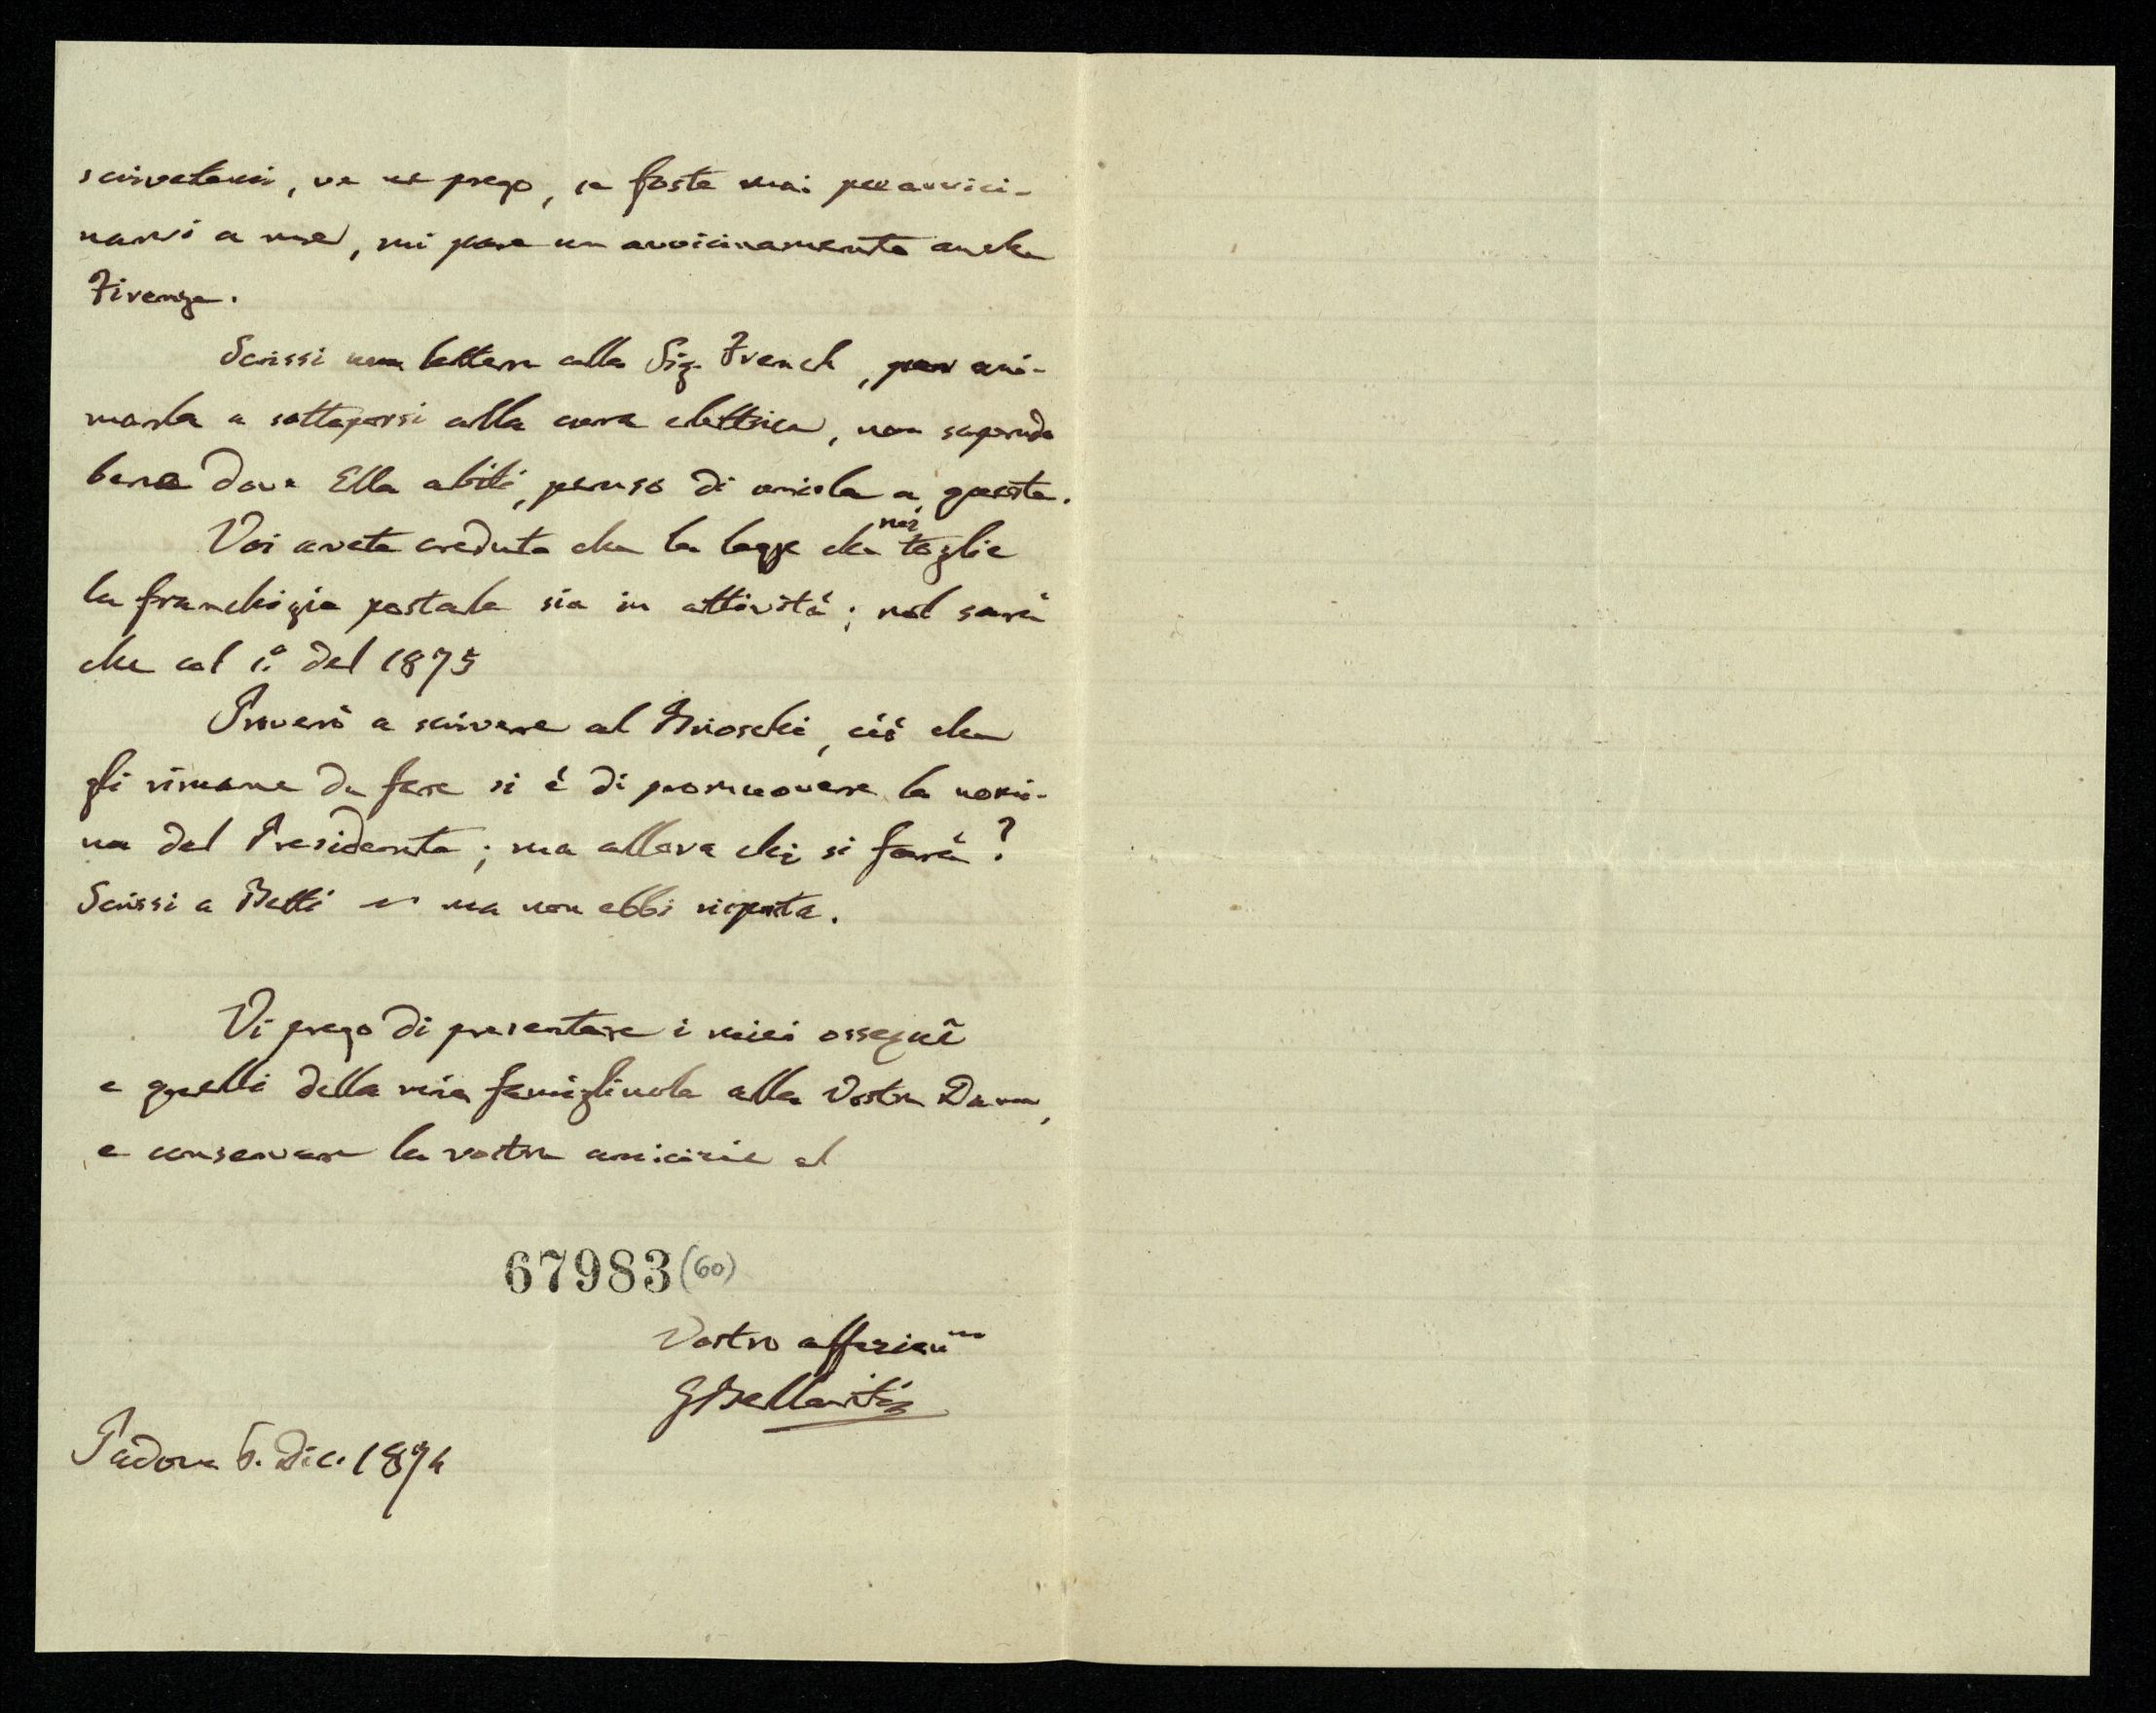 scrivetemi, ve ne prego, se foste mai per avvici-
narvi a me, mi pare un avvicinamento anche
Firenze.
Scrissi una lettera alla Sig. French, per ani-
marla a sottoporsi alla cura elettrica, non sapendo
bene dove Ella abiti, penso di unirla a questa.
Voi avete creduto che la legge che noi toglie
la franchigia postale sia in attività; nol sarà
che col 1.º del 1875
Proverò a scrivere al Brioschi, ciò che
gli rimane da fare si è di promuovere la nomi-
na del Presidente; ma allora chi si farà?
Scrissi a Betti ma non ebbi risposta.
Vi prego di presentare i miei ossequî
e quelli della mia famigliuola alla Vostra Dama,
e conservare la vostra amicizia al
67983 (60)
Vostro affezion.mo
GBellavitis
Padova 6. Dic. 1874